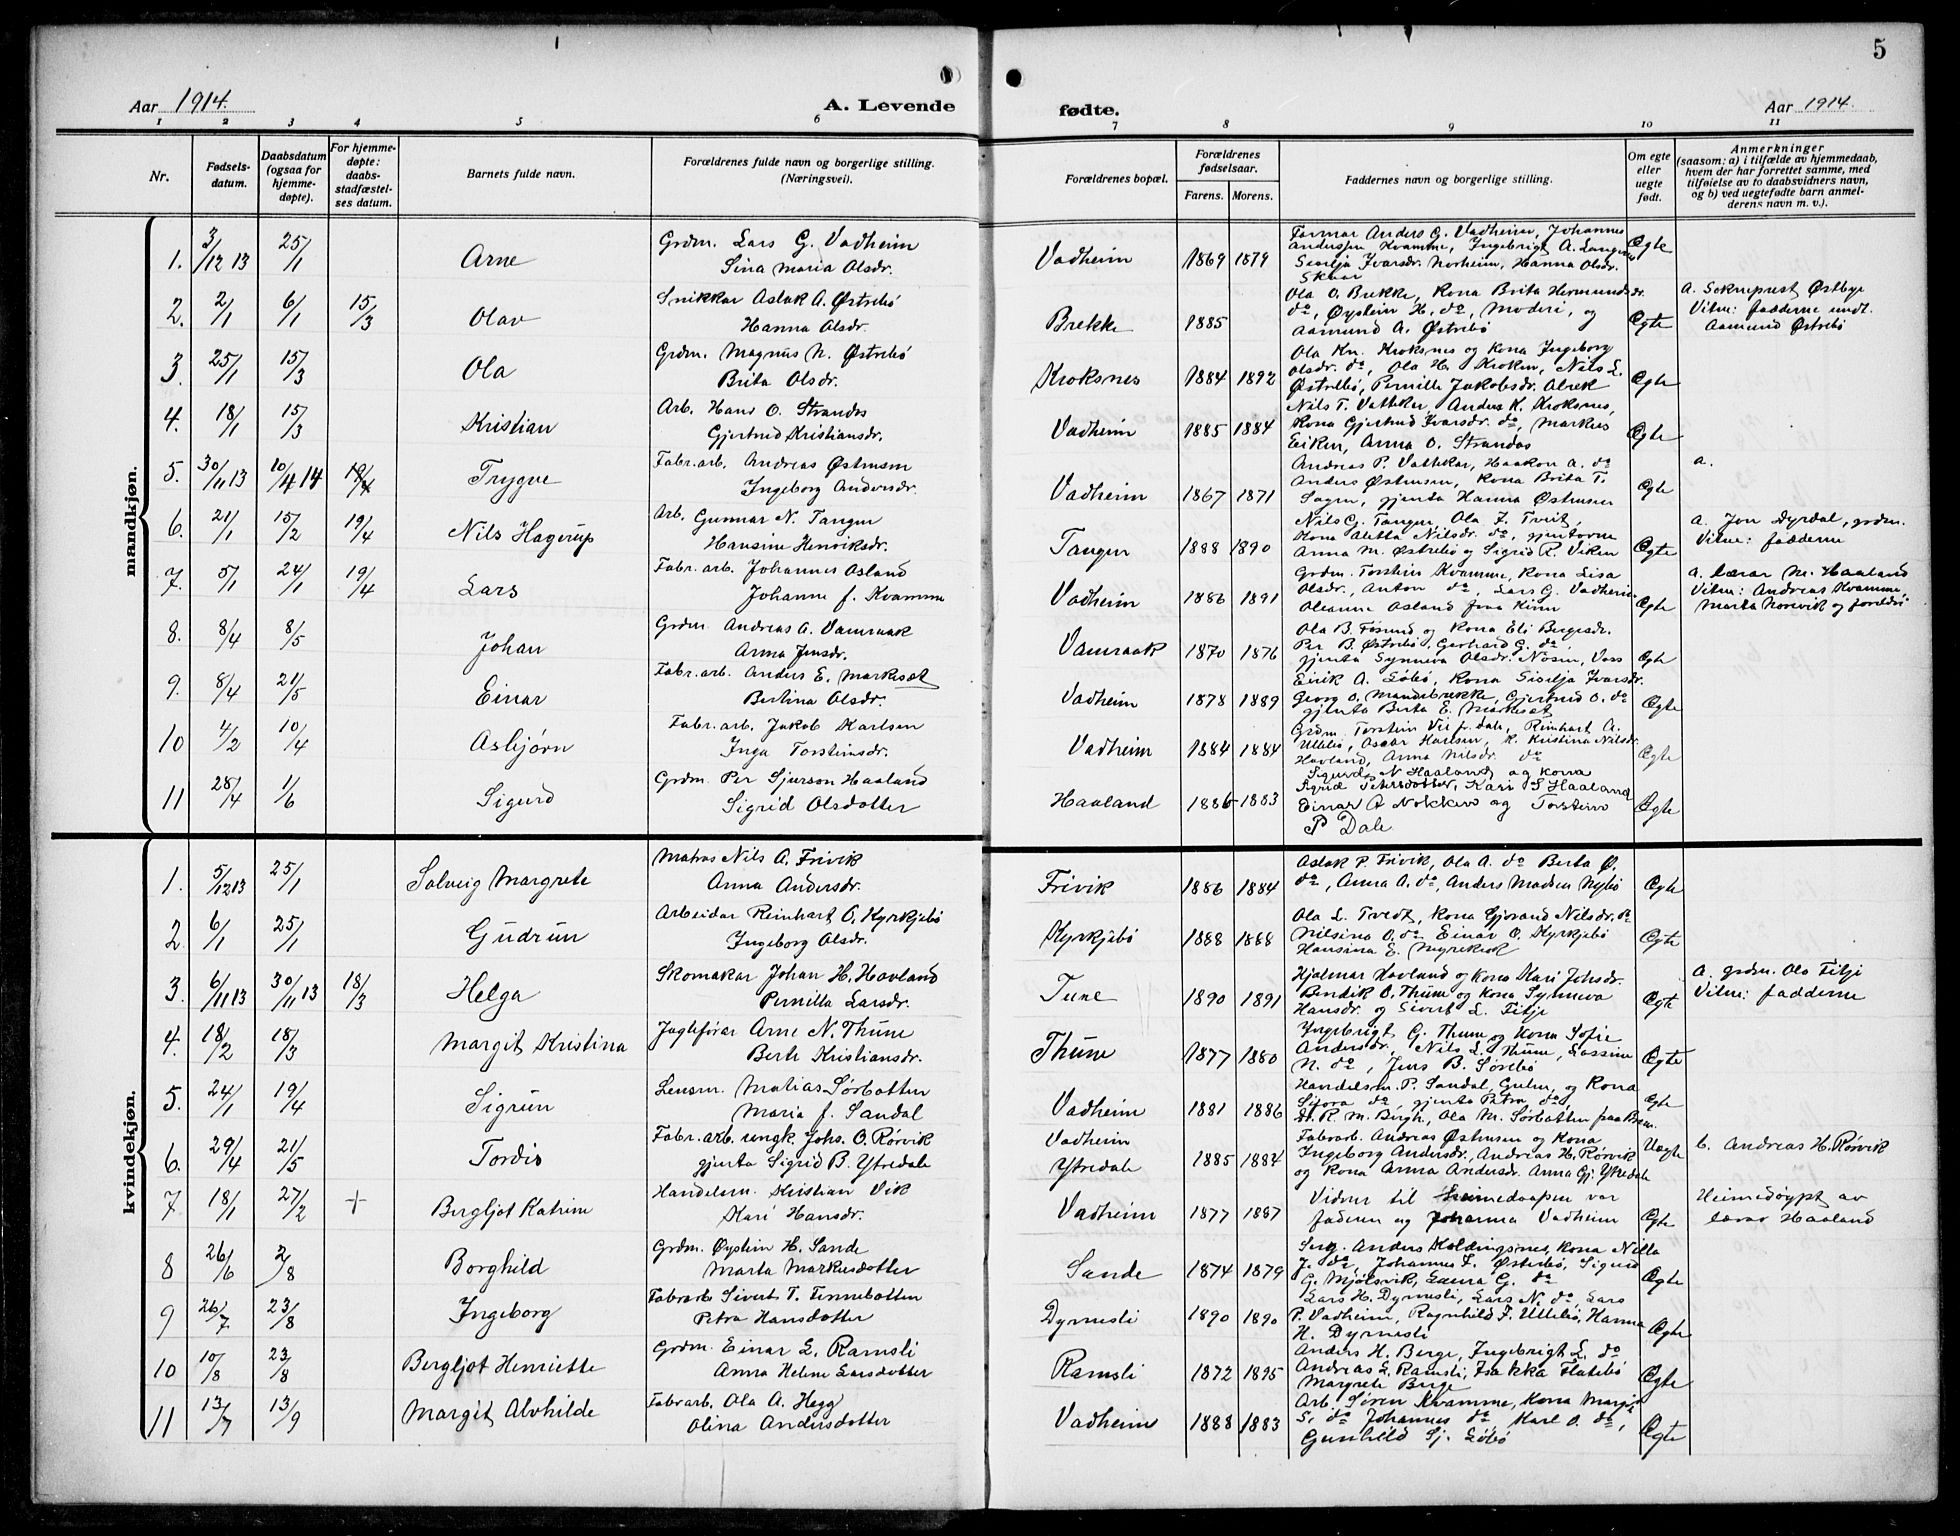 5
Aar 1914.
A. Levende
fødte.
Aar 1914.
1 2 3 4 5 6 7 8 9 10 11
Nr.
Fødsels-
datum.
Daabsdatum
(ogsaa for
hjemme-
døpte).
For hjemme-
døpte:
daabs-
stadfæstel-
ses datum.
Barnets fulde navn.
Forældrenes fulde navn og borgerlige stilling.
(Næringsvei).
Forældrenes bopæl.
Forældrenes
fødselsaar.
Farens. Morens.
Faddernes navn og borgerlige stilling.
Om egte
eller
uegte
født.
Anmerkninger
(saasom: a) i tilfælde av hjemmedaab,
hvem der har forrettet samme, med
tilføielse av to daabsvidners navn,
og b) ved uegtefødte barn anmel-
derens navn m. v.).
mandkjøn.
1. 3/12 13 25/1 Arne
Grdm. Lars G. Vadheim
Sina Maria Olsdr.
Vadheim 1869 1879
Farmar Anders G. Vadheim, Johannes
Anderssen Kvamme, Ingebrigt A.
Siselja Ivarsdr. Norheim, Hanna Olsdr.
Skaar
Ægte
2. 2/1 6/1 15/3 Olav
Snikkar Aslak A. Østrebø
Hanna Olsdr.
Brekke 1885
Ola O. Brekke, Kona Brita Hermundsdr.
do, Øystein H. do, Moderi, og
Aamund A. Østrebø
Ægte
a. Sokneprest Østbye
Vitne: fadderne undt.
Aamund Østrebø
3. 25/1 15/3 Ola
Grdm. Magnus N. Østrebø
Brita Olsdr.
Kroksnes 1884 1892
Ola Kn. Kroksnes og Kona Ingeborg
Olsdr. do, Ola H. Kroken, Nils L.
Østrebø, Pernille Jakobsdr.
Ægte
4. 18/1 15/3 Kristian
Arb. Hans O. Strandos
Gjertrud Kristiansdr.
Vadheim 1885 1884
Nils T. Vattekar, Anders K. Kroksnes,
Kona Gjertrud Ivarsdr. do, Markus
Eiken, Anna O. Strandos
Ægte
5. 30/11 13 10/4 14 19/4 Trygve
Fabr. arb. Andreas Østensen
Ingeborg Andersdr.
Vadheim 1867 1871
Andreas P. Vattekar, Haakon A. do
Anders Østensen, Kona Brita T.
gjenta Hanna Østensen
Ægte
a.
6. 21/1 15/2 19/4 Nils Hagerup
Arb. Gunnar N. Tangen
Hansine Henriksdr.
Tangen 1888 1890
Nils G. Tangen, Ola J. Tveit,
Kona Aletta Nilsdr. do, gjentorne
Anna M. Østrebø og Sigrid R. Viken
Ægte
a. Jon Dyrdal, grdm.
Vitne: fadderne
7. 5/1 24/1 19/4 Lars
Fabr. arb. Johannes Osland
Johanne f. Kvamme
Vadheim 1886 1891
Grdm. Torstein Kvamme, Kona Lisa
Olsdr., Anton do, Lars G. Vadheim
Oleanna Osland fraa Kinn
Ægte
a. lærar M. Haaland
Vitne: Andreas Kvamme,
Marta Norvik og foreldri
8. 8/4 8/5 Johan
Grdm. Andreas A. Vamraak
Anna Jensdr.
Vamraak 1870 1876
Ola B. og Kona Eli Bergesdr.
Per B. Østrebø, Gerhard G. do,
gjenta Synneva Olsdr. Nosen, Voss
Ægte
9. 8/4 21/5 Einar
Fabr. arb. Anders E. Markeset
Bertina Olsdr.
Vadheim 1878 1889
Eirik A. Søbø, Kona Siselja Ivarsdr.
Georg O. Mandsbrekke, Gjertrud O. do
gjenta Berta E. Markeset
Ægte
10 4/2 10/4 Asbjørn
Fabr. arb. Jakob Karlsen
Inga Torsteinsdr.
Vadheim 1884 1884
Grdm. Torstein Vei f. dale, Reinhart A.
Ullebø, Oscar Karlsen, K. Kristina Nilsdr.
Havland, Anna Nilsdr. do
Ægte
11 28/4 1/6 Sigurd
Grdm. Per Sjurson Haaland
Sigrid Olsdotter
Haaland 1886 1883
Sigurd N Haaland og kona
Sigrid Petersdotter, Kari S Haaland
Einar A Nokken og Torstein
P Dale
Ægte
kvindekjøn.
1. 5/12 13 25/1 Solveig Margrete
Matros Nils A. Frivik
Anna Andersdr.
Frivik 1886 1884
Aslak P. Frivik, Ola A. do Berta Ø.
do, Anna A. do, Anders Madsen Nybø
Ægte
2. 6/1 25/1 Gudrun
Arbeidar Reinhart O. Kyrkjebø
Ingeborg Olsdr.
Kyrkjebø 1888 1888
Ola L. Tvedt, Kona Gjorand Nilsdr. do
Nilsina O. do Einar O. Kyrkjebø
Hansina E.
Ægte
3. 6/11 13 30/11 13 18/3 Helga
Skomakar Johan H. Hovland
Pernilla Larsdr.
Tune 1890 1891
Hjalmar Hovland og kona Kari Johsdr.
Bendik O. Thune og kona Synneva
Hansdr. og Sivert L. Fitje
Ægte
a. grdm. Ola Fitje
Vitne: fadderne
4. 18/2 18/3 Margit Kristina
Jagteførar Arne N. Thune
Berte Kristiansdr.
Thune 1877 1880
Ingebrigt G. Thune og Kona Sofie
Andersdr., Nils L. Thune, Lassine
N. do, Jens B. Sørebø
Ægte
5. 24/1 19/4 Sigrun
Lensm. Matias Sørbotten
Maria f. Sandal
Vadheim 1881 1886
Handelsm. P. Sandal, Gulen, og Kona
Sifora do, gjenta Petra do,
St. R. M. Bergh, Ola M. Sørbotten fraa
Ægte
6. 29/4 21/5 Tordis
Fabr. arb. ungk. Johs. O. Rørvik
gjenta Sigrid B. Ytredale
Vadheim
Ytredale
1885 1884
Fabrarb. Andreas Østensen og Kona
Ingeborg Andersdr., Andreas H. Rørvik
og Kona Anna Andersdr. Anna Gj. Ytredale
Uægte
b. Andreas H. Rørvik
7. 18/1 27/2 + Bergljot Katrine
Handelsm. Kristian Vik
Kari Hansdr.
Vadheim 1877 1887
Vidner til heimedaapen var
faderen og Johanna Vadheim
Ægte
Heimedøypt av
lærar Haaland
8 26/6 2/8 Borghild
Grdm. Øystein H. Sande
Marta Markusdotter
Sande 1874 1879
Serg. Anders Koldingsnes, Kona Nilla
J. do, Johannes L. Østerbø, Sigurd
G. Mjølsvik, Laura G. do
Ægte
9 26/7 23/8 Ingeborg
Fabrarb Sivert T. Tennebotten
Petra Hansdotter
Dyrnesli 1890 1890
Lars H. Dyrnesli, Lars N. do, Lars
P. Vadheim, Ragnhild F. Ullebø, Hanna
H. Dyrnesli
Ægte
10 10/8 23/8 Bergljot Henriette
Grdm. Einar L. Ramsli
Anna Helene Larsdotter
Ramsli 1872 1895
Anders H. Berge, Ingebrigt L. do
Andreas L. Ramsli, Isakka Flatebø
Margrete Berge
Ægte
11 13/7 13/9 Margit Alvhilde
Fabrarb. Ola A. Hegg
Olina Andersdotter
Vadheim 1888 1883
Arb. Søren Kvamme, Kona Margit
S. do Johannes do, Karl O. do,
Gunhild Sj. Søbø
Ægte